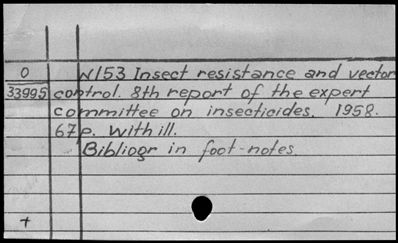 0 N153 Insect resistance and vector
33995 control. 8th report of the expert
committee on insecticides. 1958.
67p. With ill.
Bibliogr in foot-notes.
+